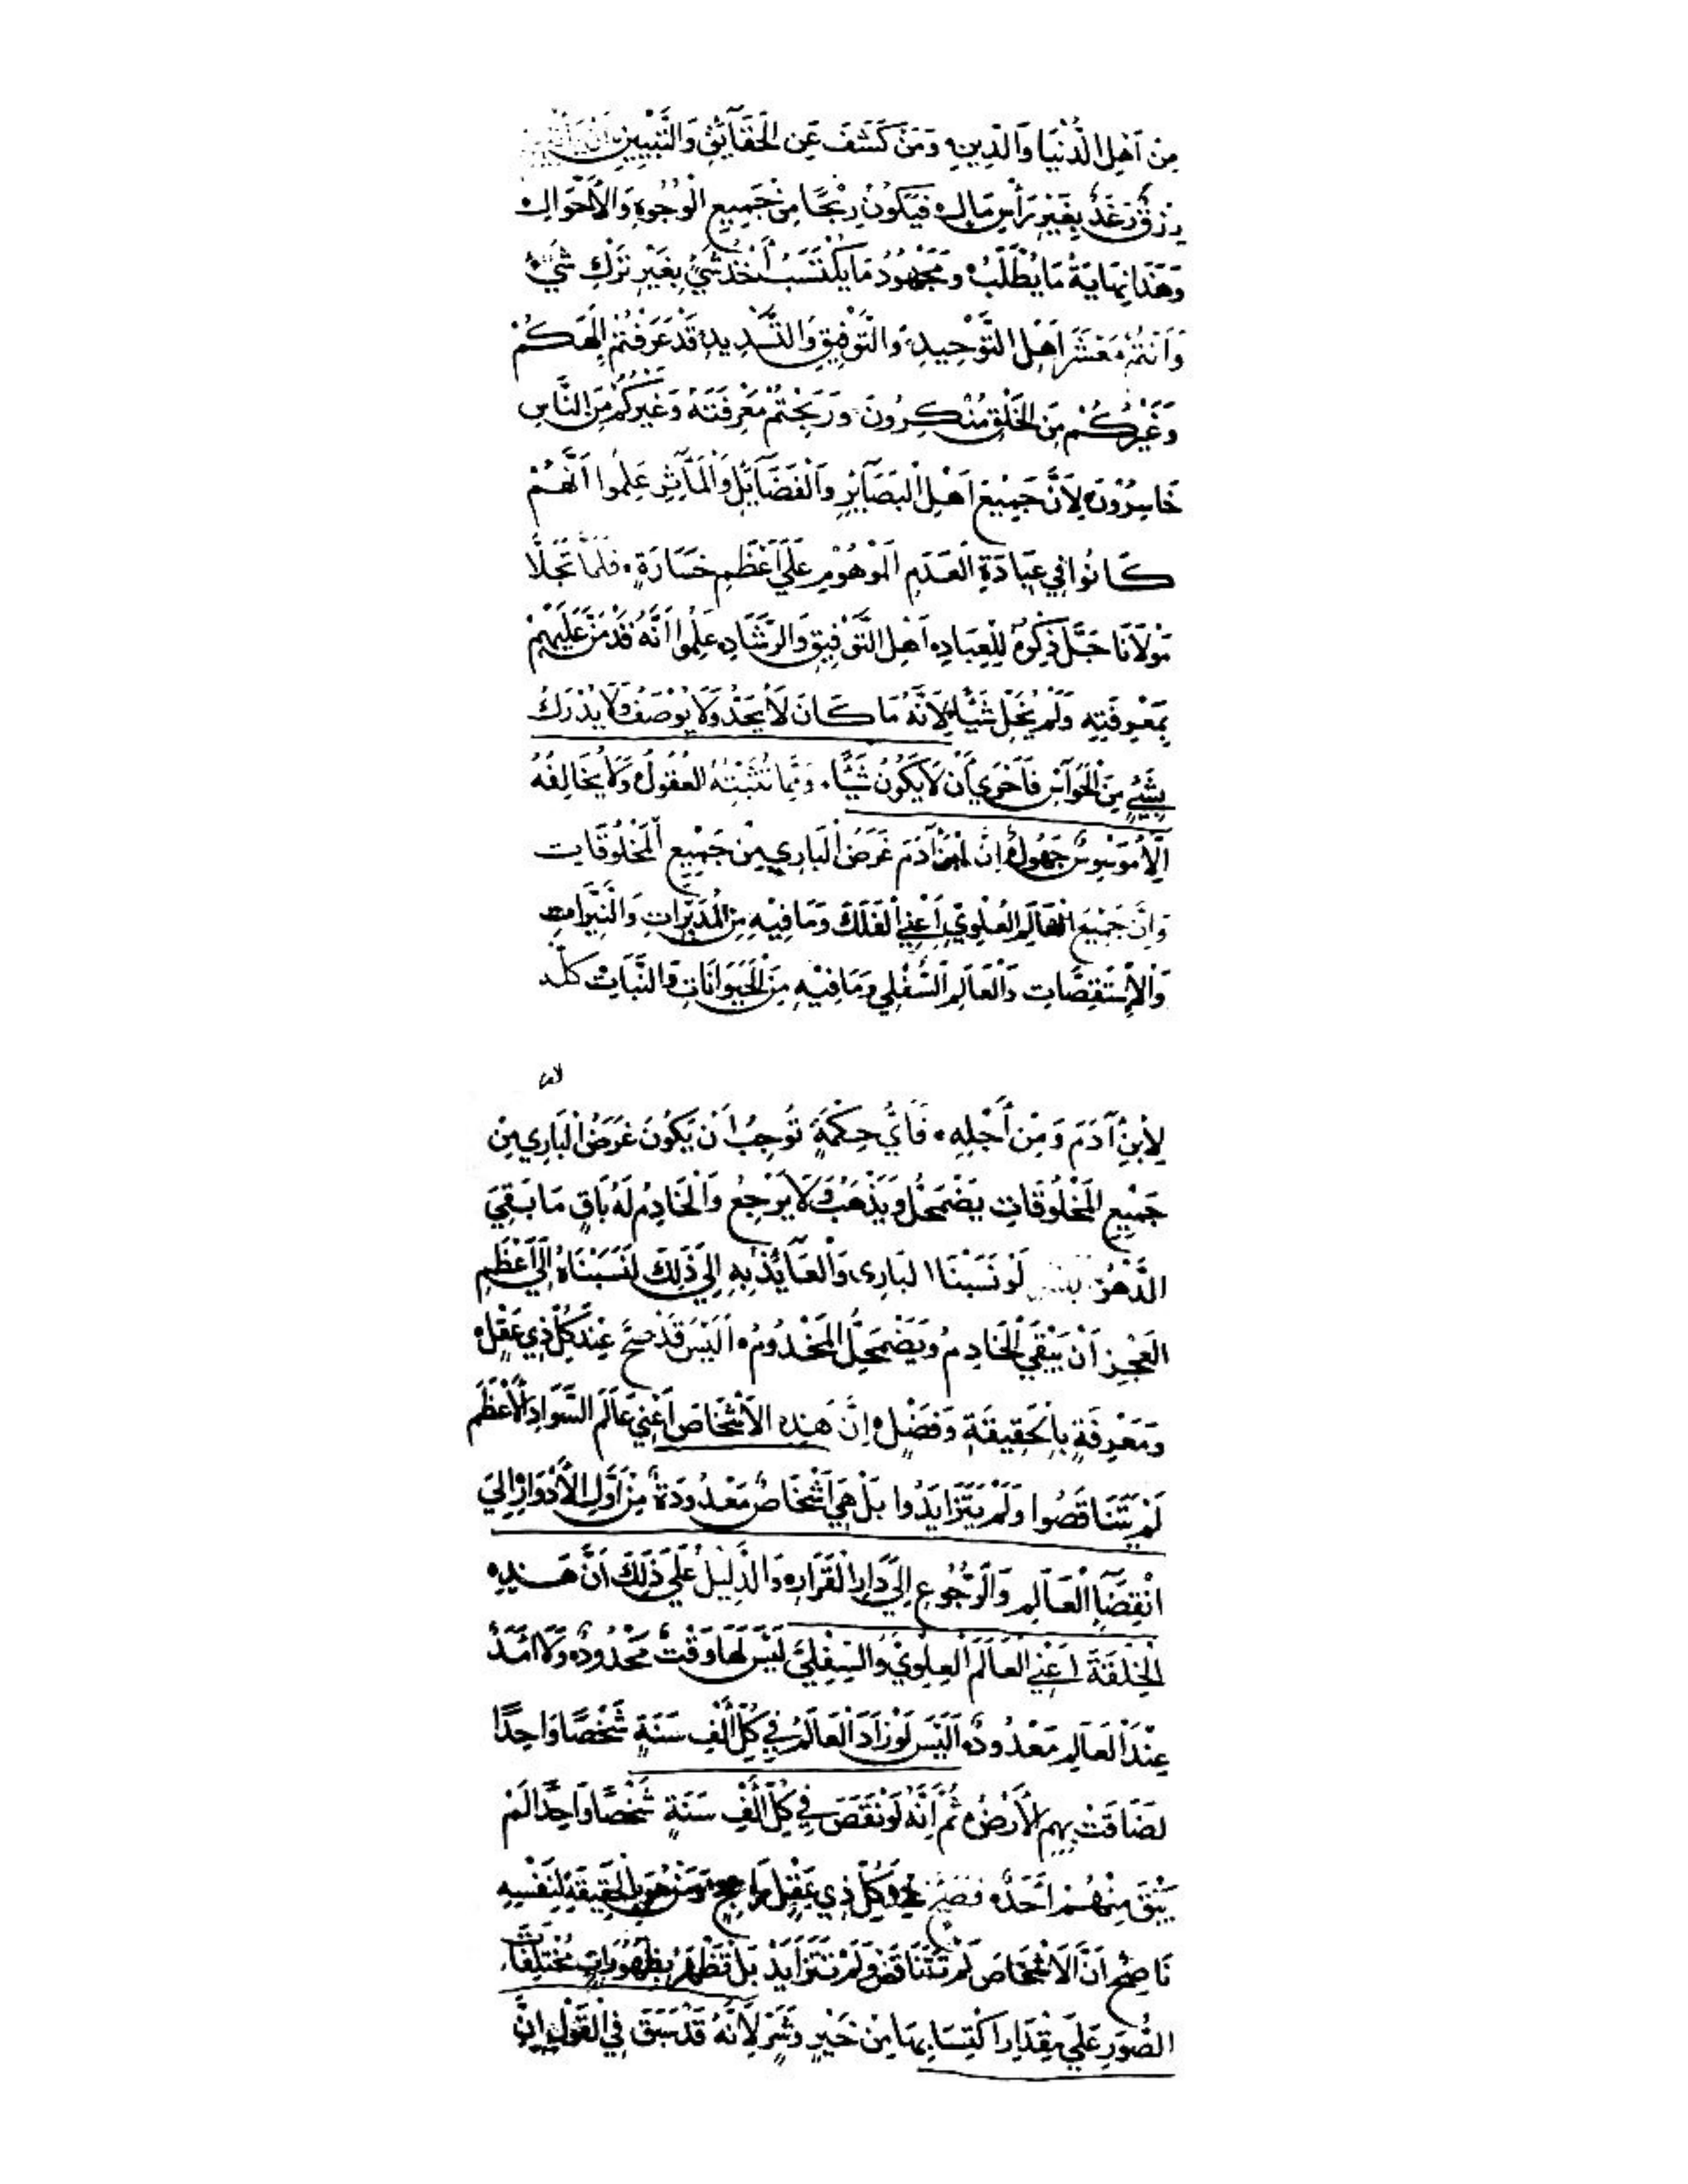 مِنْ اَهْلِ الدُّنْيَا وَالدِّينِ، وَمَنْ كَشَفَ عَنِ الحَقَآئِقِ وَالتَّبْيِينِ
رِزْقٌ رَغَدٌ بِغَيْرِ رَأْسِ مَالٍ، فَيَكُونُ رِبْحًا مِنْ جَمِيعِ الْوُجُوهِ وَالْأَحْوَالِ،
وَهَذَا نِهَايَةُ مَا يُطْلَبُ، وَمَجْهُودُ مَا يُكْتَسَبُ أَخْذُ شَيْءٍ بِغَيْرِ تَرْكِ شَيْءٍ
وَاَنْتُمْ مَعْشَرَ اَهْلِ التَّوْحِيدِ، وَالتَّوْفِيقِ وَالتَّسْدِيدِ، قَدْ عَرَفْتُمْ اِلَهَكُمْ
وَغَيْرُكُمْ مِنَ الْخَلْقِ مُنْكِرُونَ، وَرَبِحْتُمْ مَعْرِفَتَهُ وَغَيْرُكُمْ مِنَ النَّاسِ
خَاسِرُونَ، لِاَنَّ جَمِيعَ اَهْلِ الْبَصَآئِرِ وَالْفَضَآئِلِ وَالْمَآثِرِ عَلِمُوا اَنَّهُمْ
كَانُوا فِي عِبَادَةِ الْعَدَمِ الْمَوْهُوْمِ عَلَى اَعْظَمِ خَسَارَةٍ، فَلَمَّا تَجَلَّا
مَوْلَانَا جَلَّ ذِكْرُهُ لِلْعِبَادِ، اَهْلِ التَّوْفِيقِ وَالرَّشَادِ، عَلِمُوا اَنَّهُ قَدْ مَنَّ عَلَيْهِمْ
بِمَعْرِفَتِهِ وَلَمْ يُخْلِ شَيْئًا، لِاَنَّهُ مَا كَانَ لَا يُحَدُّ وَلَا يُوْصَفُ وَلَا يُدْرَكُ
بِشَيْءٍ مِنَ الْحَوَآسِ فَاَحْرَى اَنْ لَا يَكُونَ شَيْئًا، وَمِمَّا تُثْبِتُهُ العُقُولُ، وَلَا يُخَالِفُهُ
اِلَّا مُوَسْوِسٌ جَهُولٌ، اِنَّ ابْنَ آدَمَ غَرَضُ الْبَارِي مِنْ جَمِيعِ الْمَخْلُوقَاتِ
وَاِنَّ جَمِيعَ الْعَالَمِ الْعُلْوِيِّ اَعْنِي الْفَلَكَ وَمَا فِيْهِ مِنَ الْمُدَبِّرَاتِ وَالنَّيِّرَاتِ
وَالْاِسْتَقْصَاتِ وَالْعَالَمِ السُّفْلِي وَمَا فِيْهِ مِنَ الْحَيَوَانَاتِ وَالنَّبَاتِ كُلّه
لِابْنِ آدَمَ وَمِنْ أَجْلِهِ، فَاَيُّ حِكْمَةٍ تُوجِبُ اَنْ يَكُونَ غَرَضُ الْبَارِي مِنْ
جَمِيعِ الْمَخْلُوقَاتِ يَضْمَحِلُّ وَيَذْهَبُ وَلَا يَرْجِعُ وَالْخَادِمُ لَهُ بَاقٍ مَا بَقِيَ
الدَّهْرُ لَوْ نَسَبْنَا الْبَارِى وَالْعَآئِذُ بِهِ اِلَى ذَلِكَ لَنَسَبْنَاهُ اِلَى اَعْظَمِ
العَجْزِ اَنْ يَبْقَى الْخَادِمُ وَيَضْمَحِلَّ الْمَخْدُومُ، اَلَيْسَ قَدْ صَحَّ عِنْدَ كُلِّ ذِي عَقْلٍ،
وَمَعْرِفَةٍ بِالْحَقِيقَةِ وَفَضْلٍ، اِنَّ هَذِهِ الْاَشْخَاصَ اَعْنِي عَالَمَ السَّوَادِ الْاَعْظَمِ
لَمْ يَتَنَاقَصُوا وَلَمْ يَتَزَايَدُوا بَلْ هِيَ اَشْخَاصٌ مَعْدُودَةٌ مِنْ اَوَّلِ الْاَدْوَارِ اِلَى
انْقِضَآءِ الْعَالَمِ وَالرُّجُوعِ اِلَى دَارِ الْقَرَارِ، وَالدَّلِيْلُ عَلَى ذَلِكَ اَنَّ هَذِهِ
الْخِلْقَةَ اَعْنِي الْعَالَمَ الْعِلْوِيَّ وَالسِّفْلِيَّ لَيْسَ لَهَا وَقْتٌ مَحْدُودٌ، وَلَا اَمَدٌ
عِنْدَ الْعَالَمِ مَعْدُودٌ، اَلَيْسَ لَوْ زَادَ الْعَالَمُ فِي كُلِّ اَلْفِ سَنَةٍ شَخْصًا وَاحِدًا
لَضَاقَتْ بِهِمِ الْاَرْضُ، ثُمَّ اِنَّهُ لَوْ نَقَصَ فِي كُلِّ اَلْفِ سَنَةٍ شَخْصًا وَاحِدًا لَمْ
يَبْقَ مِنْهُمْ اَحَدٌ، فَصَحَّ كُلِّ ذِي عَقْلٍ رَاجِحٍ، وَمَنْ هُوَ بِالْحَقِيقَةِ لِنَفْسِهِ
نَاصِحٌ اَنَّ الْاَشْخَاصَ لَمْ تَتَنَاقَصْ وَلَمْ تَتَزَايَدْ بَلْ تَظْهَرُ بِظُهُورَاتٍ مُخْتَلِفَاتِ
الصُّوَرِ عَلَى مِقْدَارِ اكْتِسَابِهَا مِنْ خَيْرٍ وَشَرٍّ لِاَنَّهُ قَدْ سَبَقَ فِي الْقَوْلِ اِنَّ